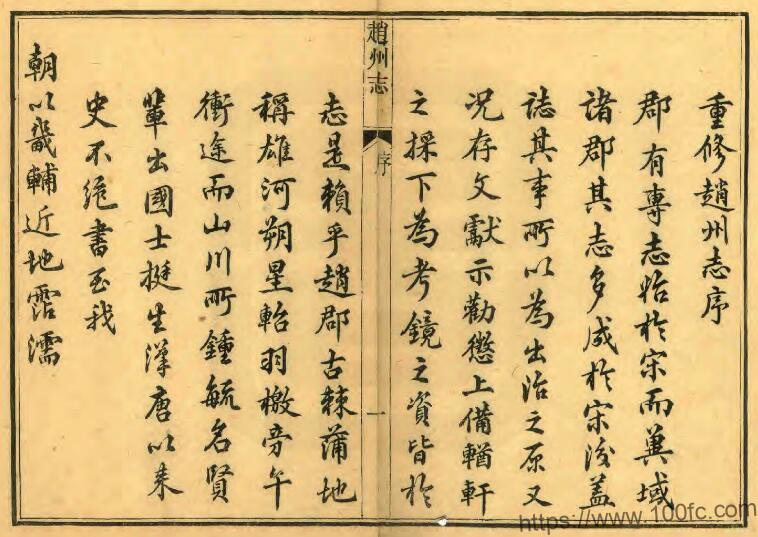 重修趙州志序
郡有專志昉於宋而冀域
諸郡其志多成於宋後蓋
誌其事所以為出治之原又
況存文獻示勸懲上備輶軒
之採下為考鏡之資皆於
趙州志
序
一
志是賴乎趙郡古棘蒲地
稱雄河朔星軺羽檄旁午
衝途而山川所鍾毓名賢
輩出國士挺生漢唐以來
史不絕書至我
朝以畿輔近地霑濡
https://www.100fc.com